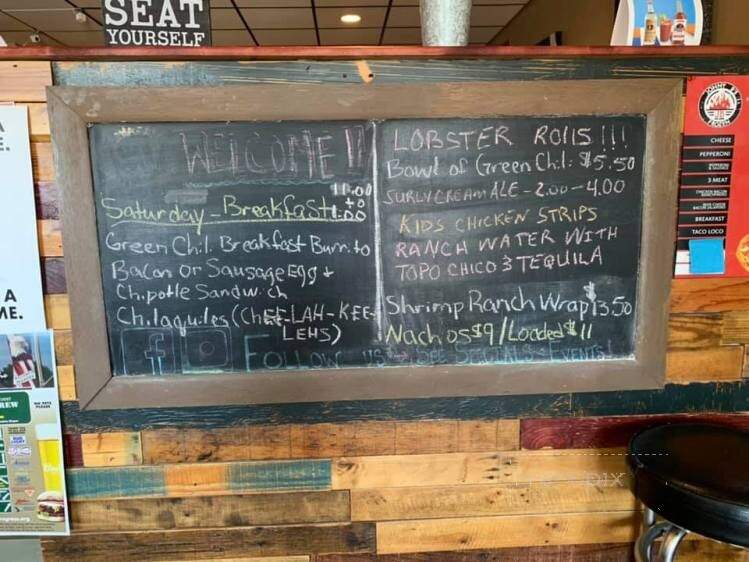 SEAT
YOURSELF
WELCOME !!
11:00
to
1:00
Saturday - Breakfast
Green Chil. Breakfast Burrito
Bacon or Sausage Egg +
Chipotle Sandwich
Chilaquiles (CHEE-LAH-KEE-
LEHS)
LOBSTER ROllS !!!
Bowl of Green Chil: $5.50
SURLY CREAM ALE - 2.00 - 4.00
KIDS CHICKEN STRIPS
RANCH WATER WITH
TOPO CHICO & TEQUILA
Shrimp Ranch Wrap $13.50
Nachos $9/Loaded $11
FOLLOW US - SEE SPECIALS + EVENTS!
f
E.
A
ME.
REW
CHEESE
PEPPERONI
3 MEAT
BREAKFAST
TACO LOCO